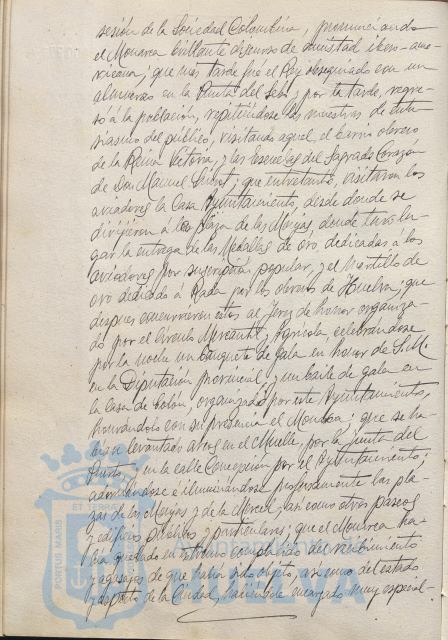 sesión de la Sociedad Colombina, pronunciando
el Monarca brillante discurso de amistad ibero-ame-
ricana; que mas tarde fué el Rey obsequiado con un
almuerzo en la Punta del Sebo; por la tarde, regre-
só á la población, repitiéndose las muestras de entu-
siasmo del público, visitando aquel el barrio obrero
de la Reina Victoria, y las Escuelas del Sagrado Corazon
de Don Manuel Siurot; que entretanto, visitaron los
aviadores la Casa Ayuntamiento, desde donde se
dirigieron á la plaza de las Monjas, donde tuvo lu-
gar la entrega de las Medallas de oro dedicadas á los
aviadores por suscripción popular, y el Martillo de
oro dedicado á Rada por los obreros de Huelva; que
despues concurrieron estos al Jerez de honor organiza-
do por el Círculo Mercantil y Agrícola, celebrandose
por la noche un banquete de gala en honor de S.M.
en la Diputación provincial, y un baile de gala en
la Casa de Colón, organizado por este Ayuntamiento,
honrándolo con su presencia el Monarca; que se ha-
bían levantado arcos en el Muelle, por la Junta del
Puerto, y en la calle Concepción por el Ayuntamiento;
adornándose é iluminándose profusamente las pla-
zas de las Monjas y de la Merced, asi como otros paseos
y edificios publicos y particulares; que el Monarca ha-
bía quedado en extremo complacido del recibimiento
y agasajos de que habia sido objeto, asi como del estado
y aspecto de la Ciudad, habiéndole encargado muy especial-
Ayuntamiento de
HUELVA
PORTUS MARIS ET TERRAE